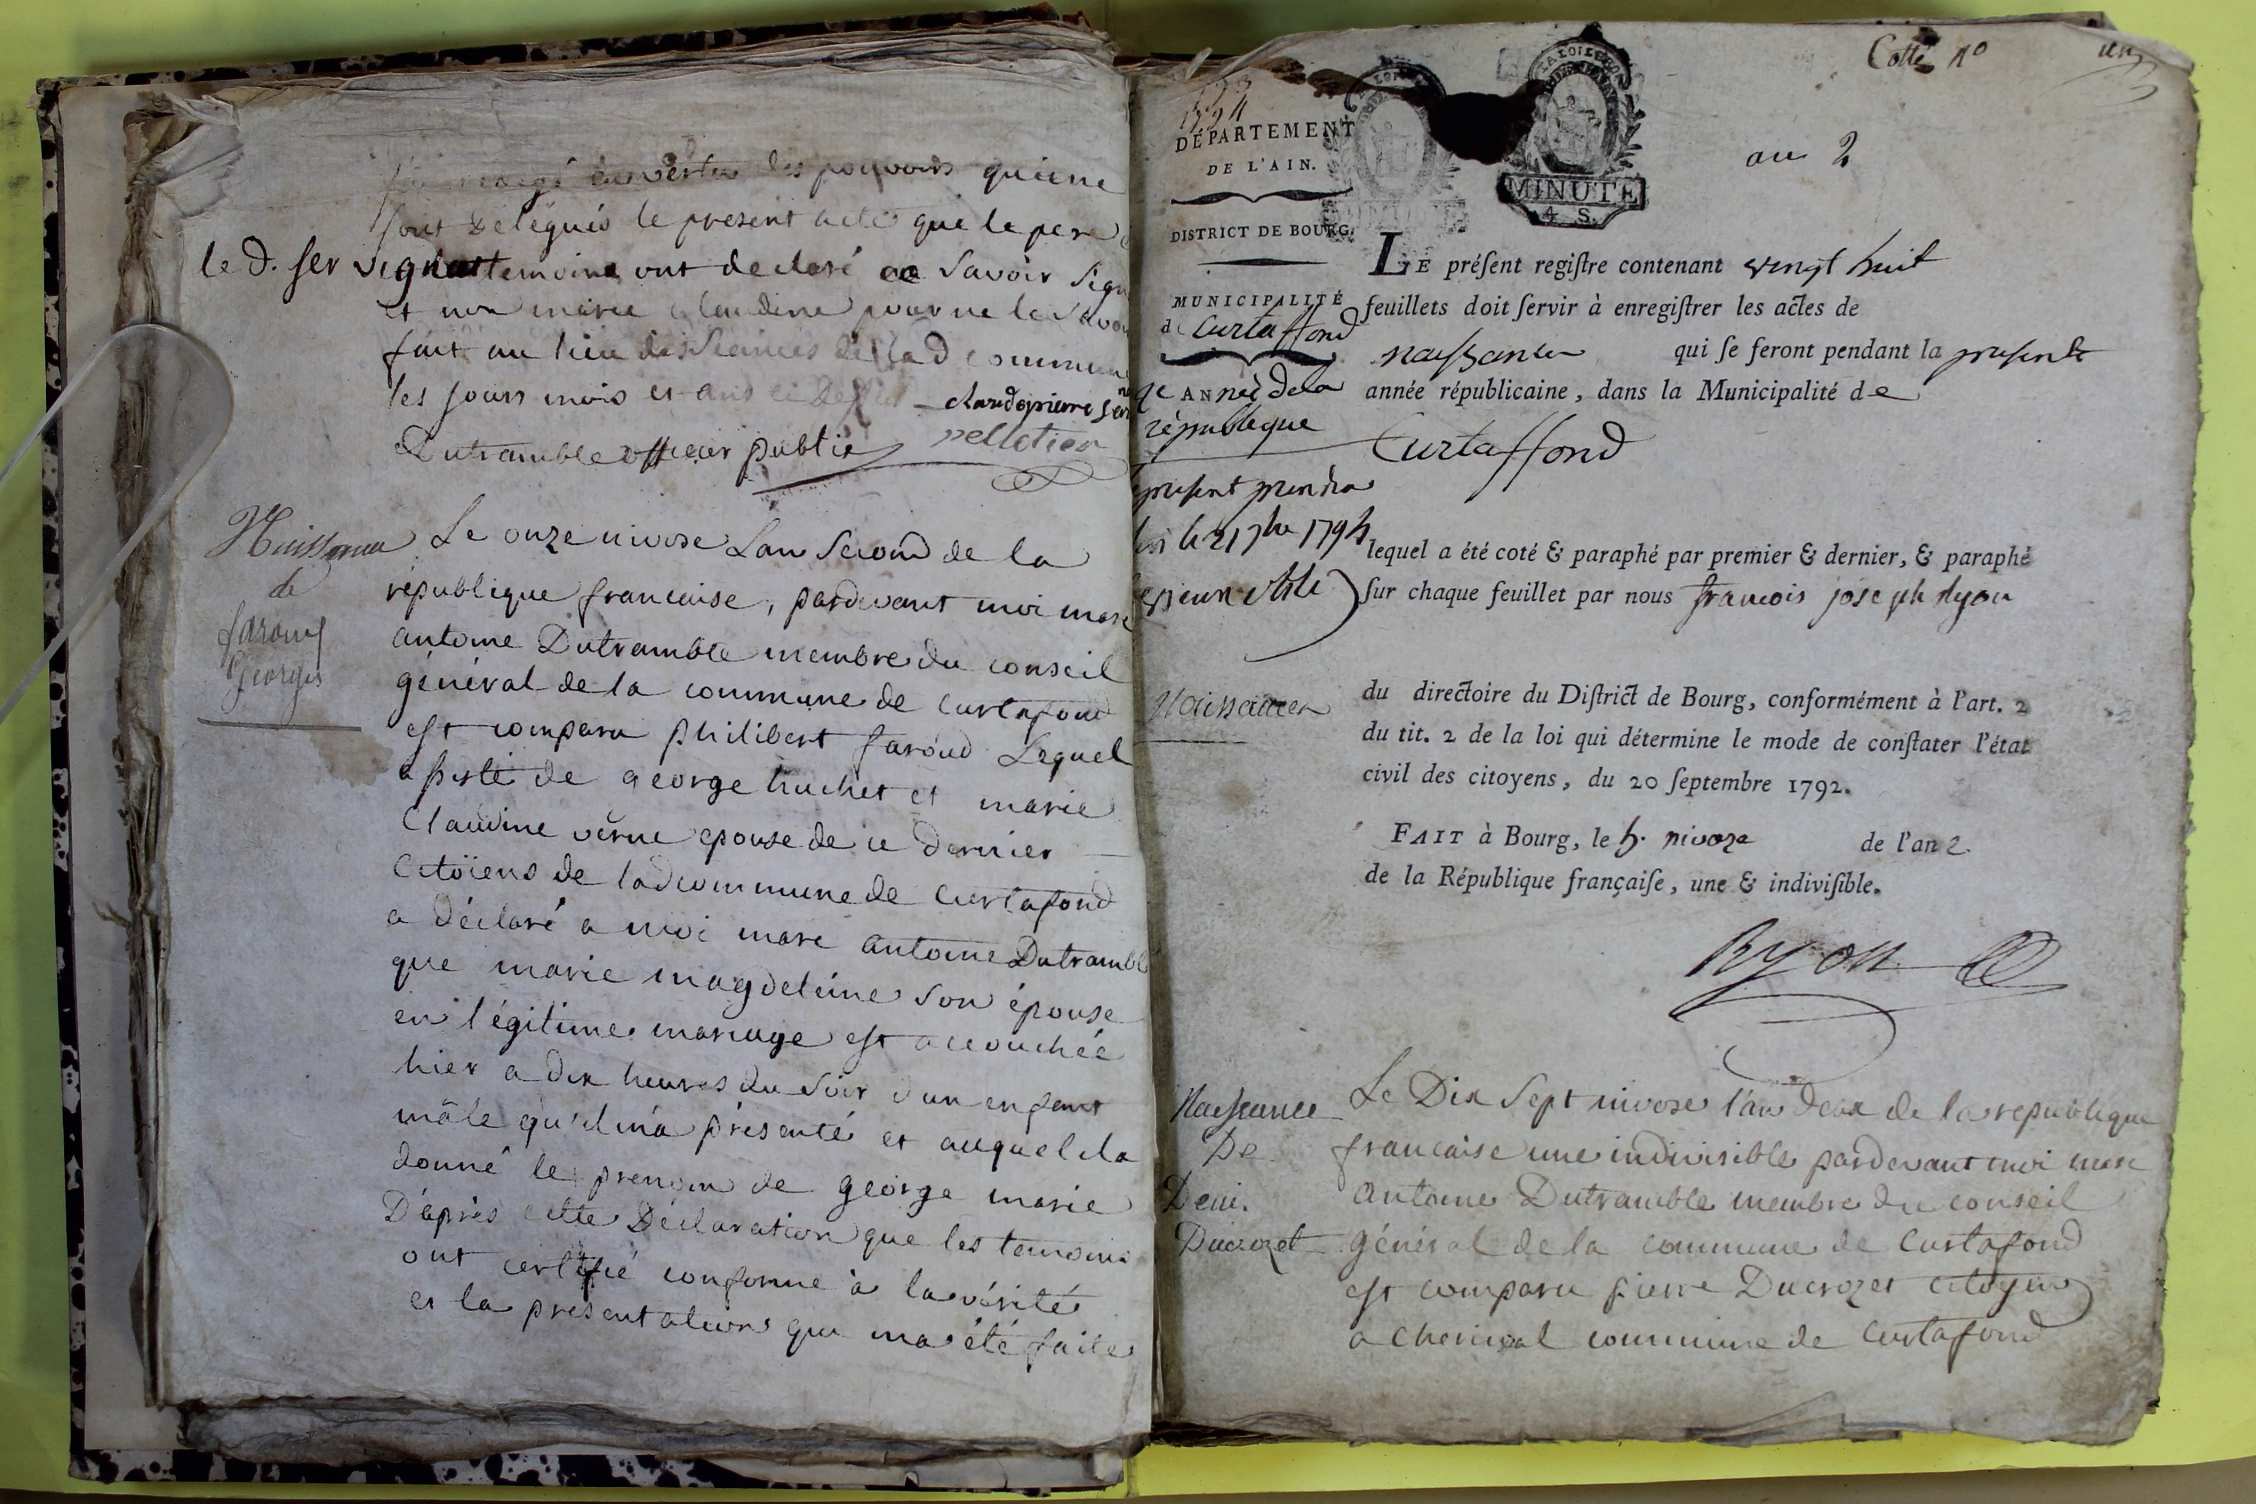 rédigé en vertu des pouvoirs qui me
sont délégués le present acte que le pere
le d. ser vignat temoins ont declaré savoir sign
et non marie claudine pour ne le savoi
fait au lieu des seances de lad commune
les jours mois et ans ci dessus claudepierre ser
Dutramble officier public pelletier
Naissance
de
faroud
Georges
Le onze nivose L'an second de la
république francaise, pardevant moi marc
antoine Dutramble membre du conseil
général de la commune de Curtafond
est comparu philibert faroud Lequel
assisté de george huchet et marie
Claudine verne epouse de ce dernier
Citöiens de lad commune de Curtafond
a déclaré a moi marc antoine Dutrambl
que marie magdeleine son épouse
en légitime mariage est accouchée
hier a dix heures du soir d'un enfant
mâle qu'il m'a présenté et auquel il a
donné le prenom de george marie
D'après cette Déclaration que les temoins
ont certifié conforme à la vérité
et la presentation qui m'a été faite
Cotté no un
DÉPARTEMENT
DE L'AIN.
MINUTE
4 S.
an 2
DISTRICT DE BOURG.
MUNICIPALITÉ
de Curtaffond
2e ANNée de la
république
LE préſent regiſtre contenant vingt huit
feuillets doit ſervir à enregiſtrer les actes de
naissances qui ſe feront pendant la presente
année républicaine, dans la Municipalité de
Curtaffond
present
le 21 7bre 1794
lequel a été coté & paraphé par premier & dernier, & paraphé
ſur chaque feuillet par nous francois joseph Ryon
Naissances
du directoire du Diſtrict de Bourg, conformément à l'art. 2
du tit. 2 de la loi qui détermine le mode de conſtater l'état
civil des citoyens, du 20 ſeptembre 1792.
FAIT à Bourg, le 5. nivoze de l'an 2.
de la République françaiſe, une & indiviſible.
Ryon
Naissance
De
Deni.
Ducrozet
Le Dix Sept nivose l'an deux de la republique
francaise une indivisible pardevant moi marc
antoine Dutramble membre du conseil
général de la commune de Curtafond
est comparu pierre Ducrozet citoyen
a chenival commune de Curtafond